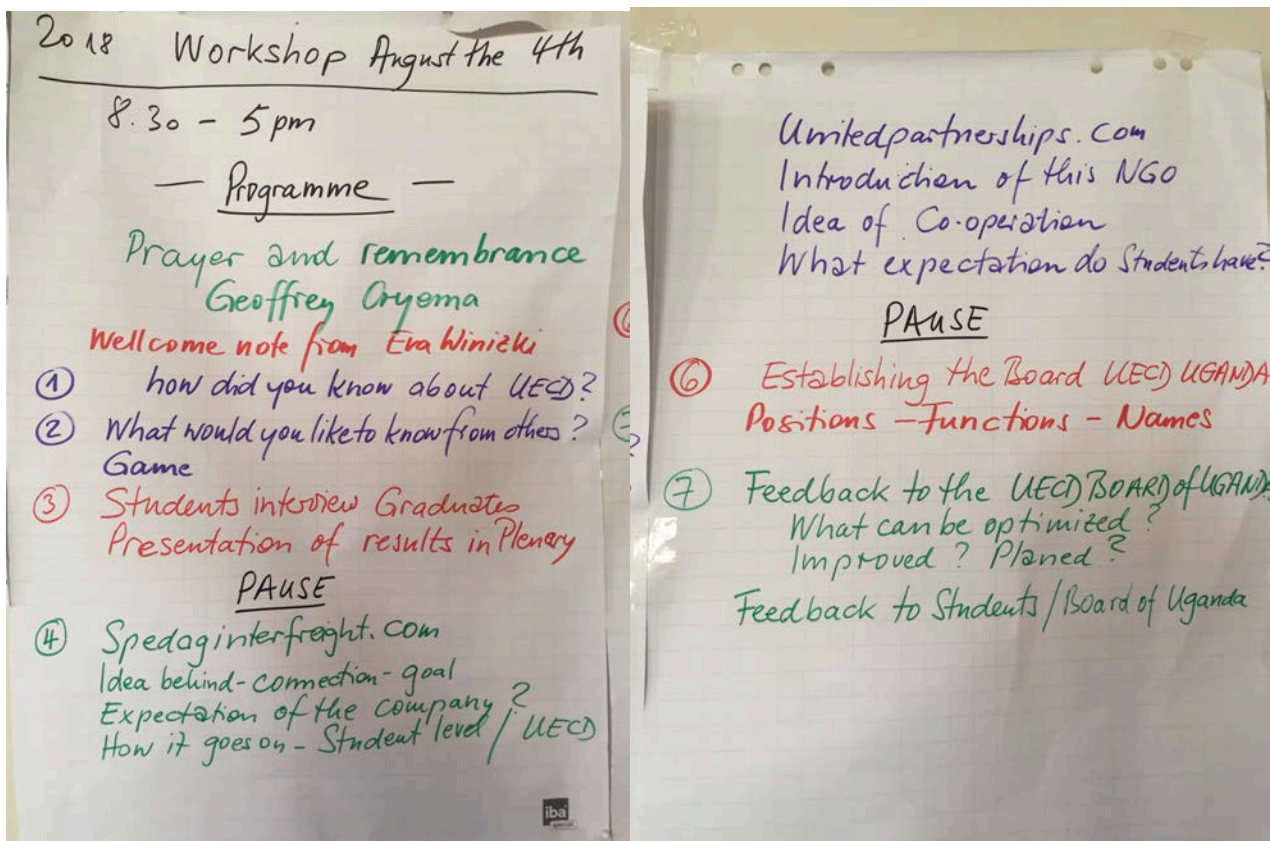 2018 Workshop August the 4th
8.30 - 5pm
— Programme —
Prayer and remembrance
Geoffrey Oryema
Wellcome note from Eva Winizki
① how did you know about UECD?
② What would you like to know from others?
Game
③ Students interview Graduates
Presentation of results in Plenary
PAUSE
④ Spedaginterfreight.com
Idea behind - connection - goal
Expectation of the company?
How it goes on - Student level / UECD
iba
Unitedpartnerships.com
Introduction of this NGO
Idea of Co-operation
What expectation do Students have?
PAUSE
⑥ Establishing the Board UECD UGANDA
Positions - Functions - Names
⑦ Feedback to the UECD BOARD of UGANDA
What can be optimized?
Improved? Planed?
Feedback to Students / Board of Uganda